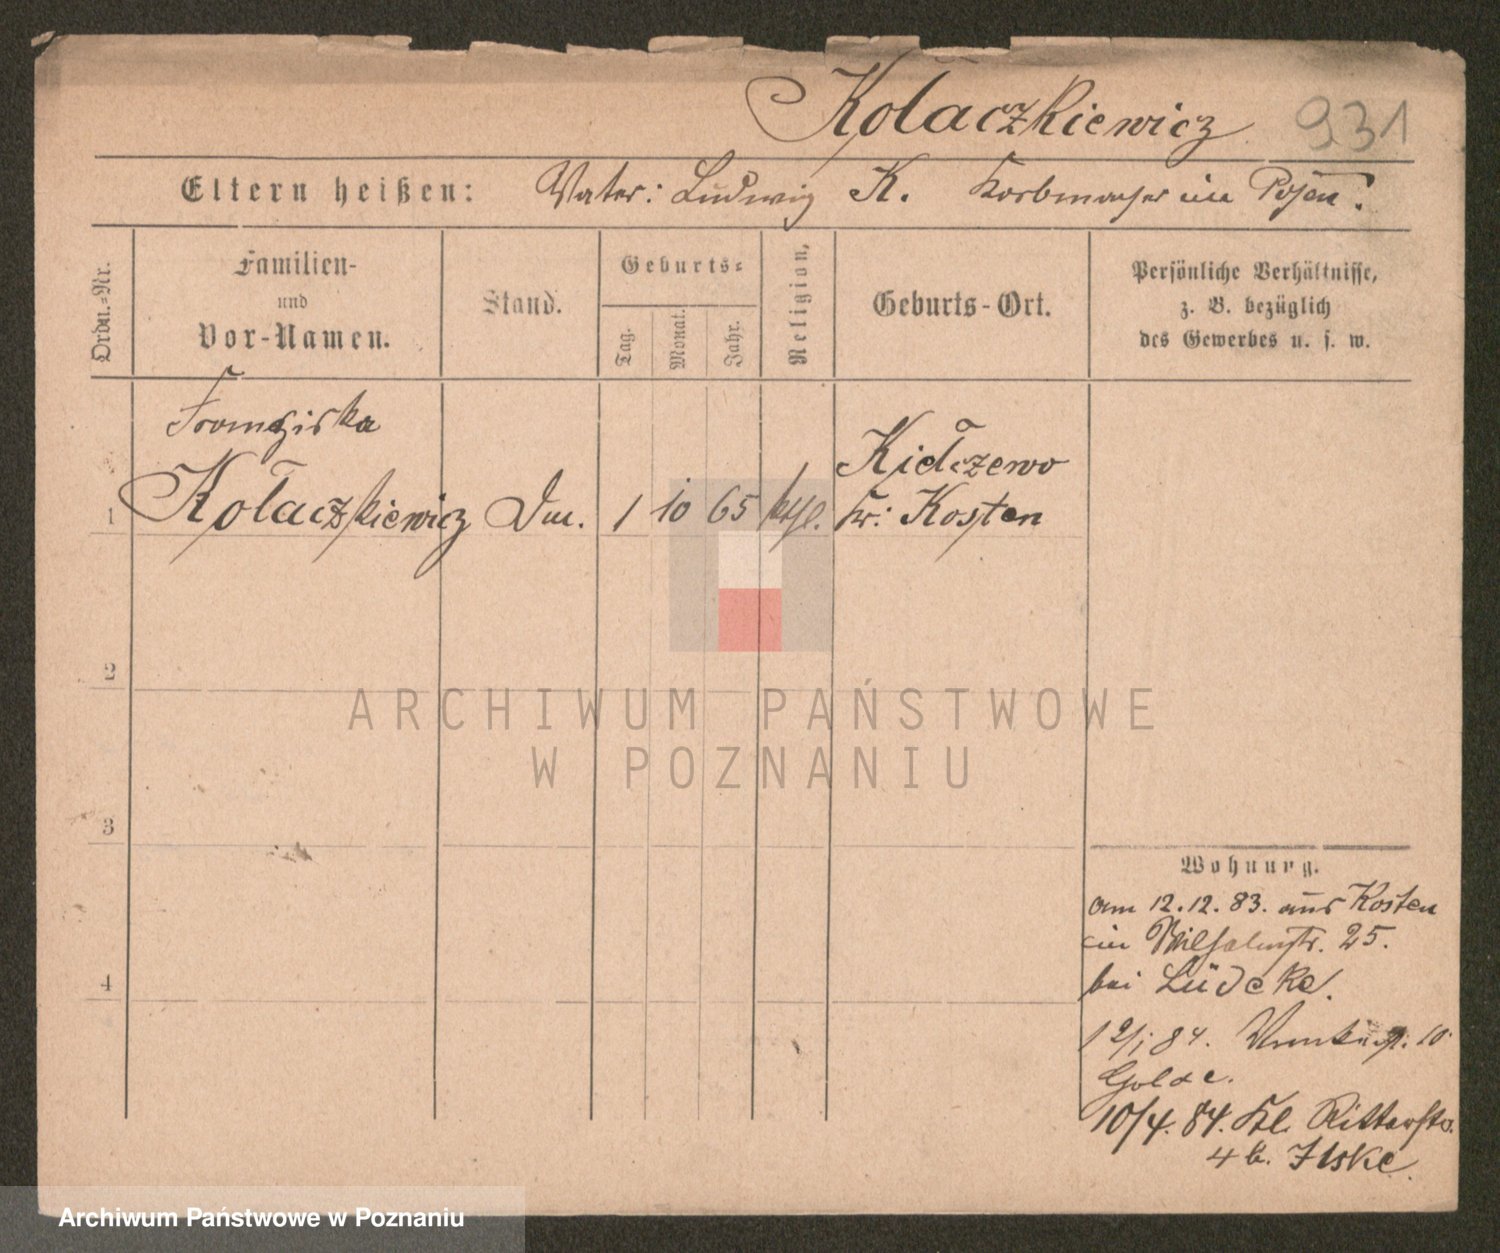 Kołaczkiewicz 931
Eltern heißen: Vater: Ludwig K. Korbmacher in Posen.
Ordn.-Nr.
Familien-
und
Vor-Namen.
Stand.
Geburts-
Tag.
Monat.
Jahr.
Religion.
Geburts-Ort.
Persönliche Verhältnisse,
z. B. bezüglich
des Gewerbes u. s. w.
Franziska
1 Kołaczkiewicz 1 10 65 kthl.
Kiełczewo
Kr: Kosten
2
3
4
Wohnung.
am 12.12.83. aus Kosten
in Wilhelmstr. 25.
bei Lüdcke.
12/1 84. 10
Golde.
10/4. 84. Kl. Ritterstr.
4 b. Ilske.
ARCHIWUM PAŃSTWOWE
W POZNANIU
Archiwum Państwowe w Poznaniu